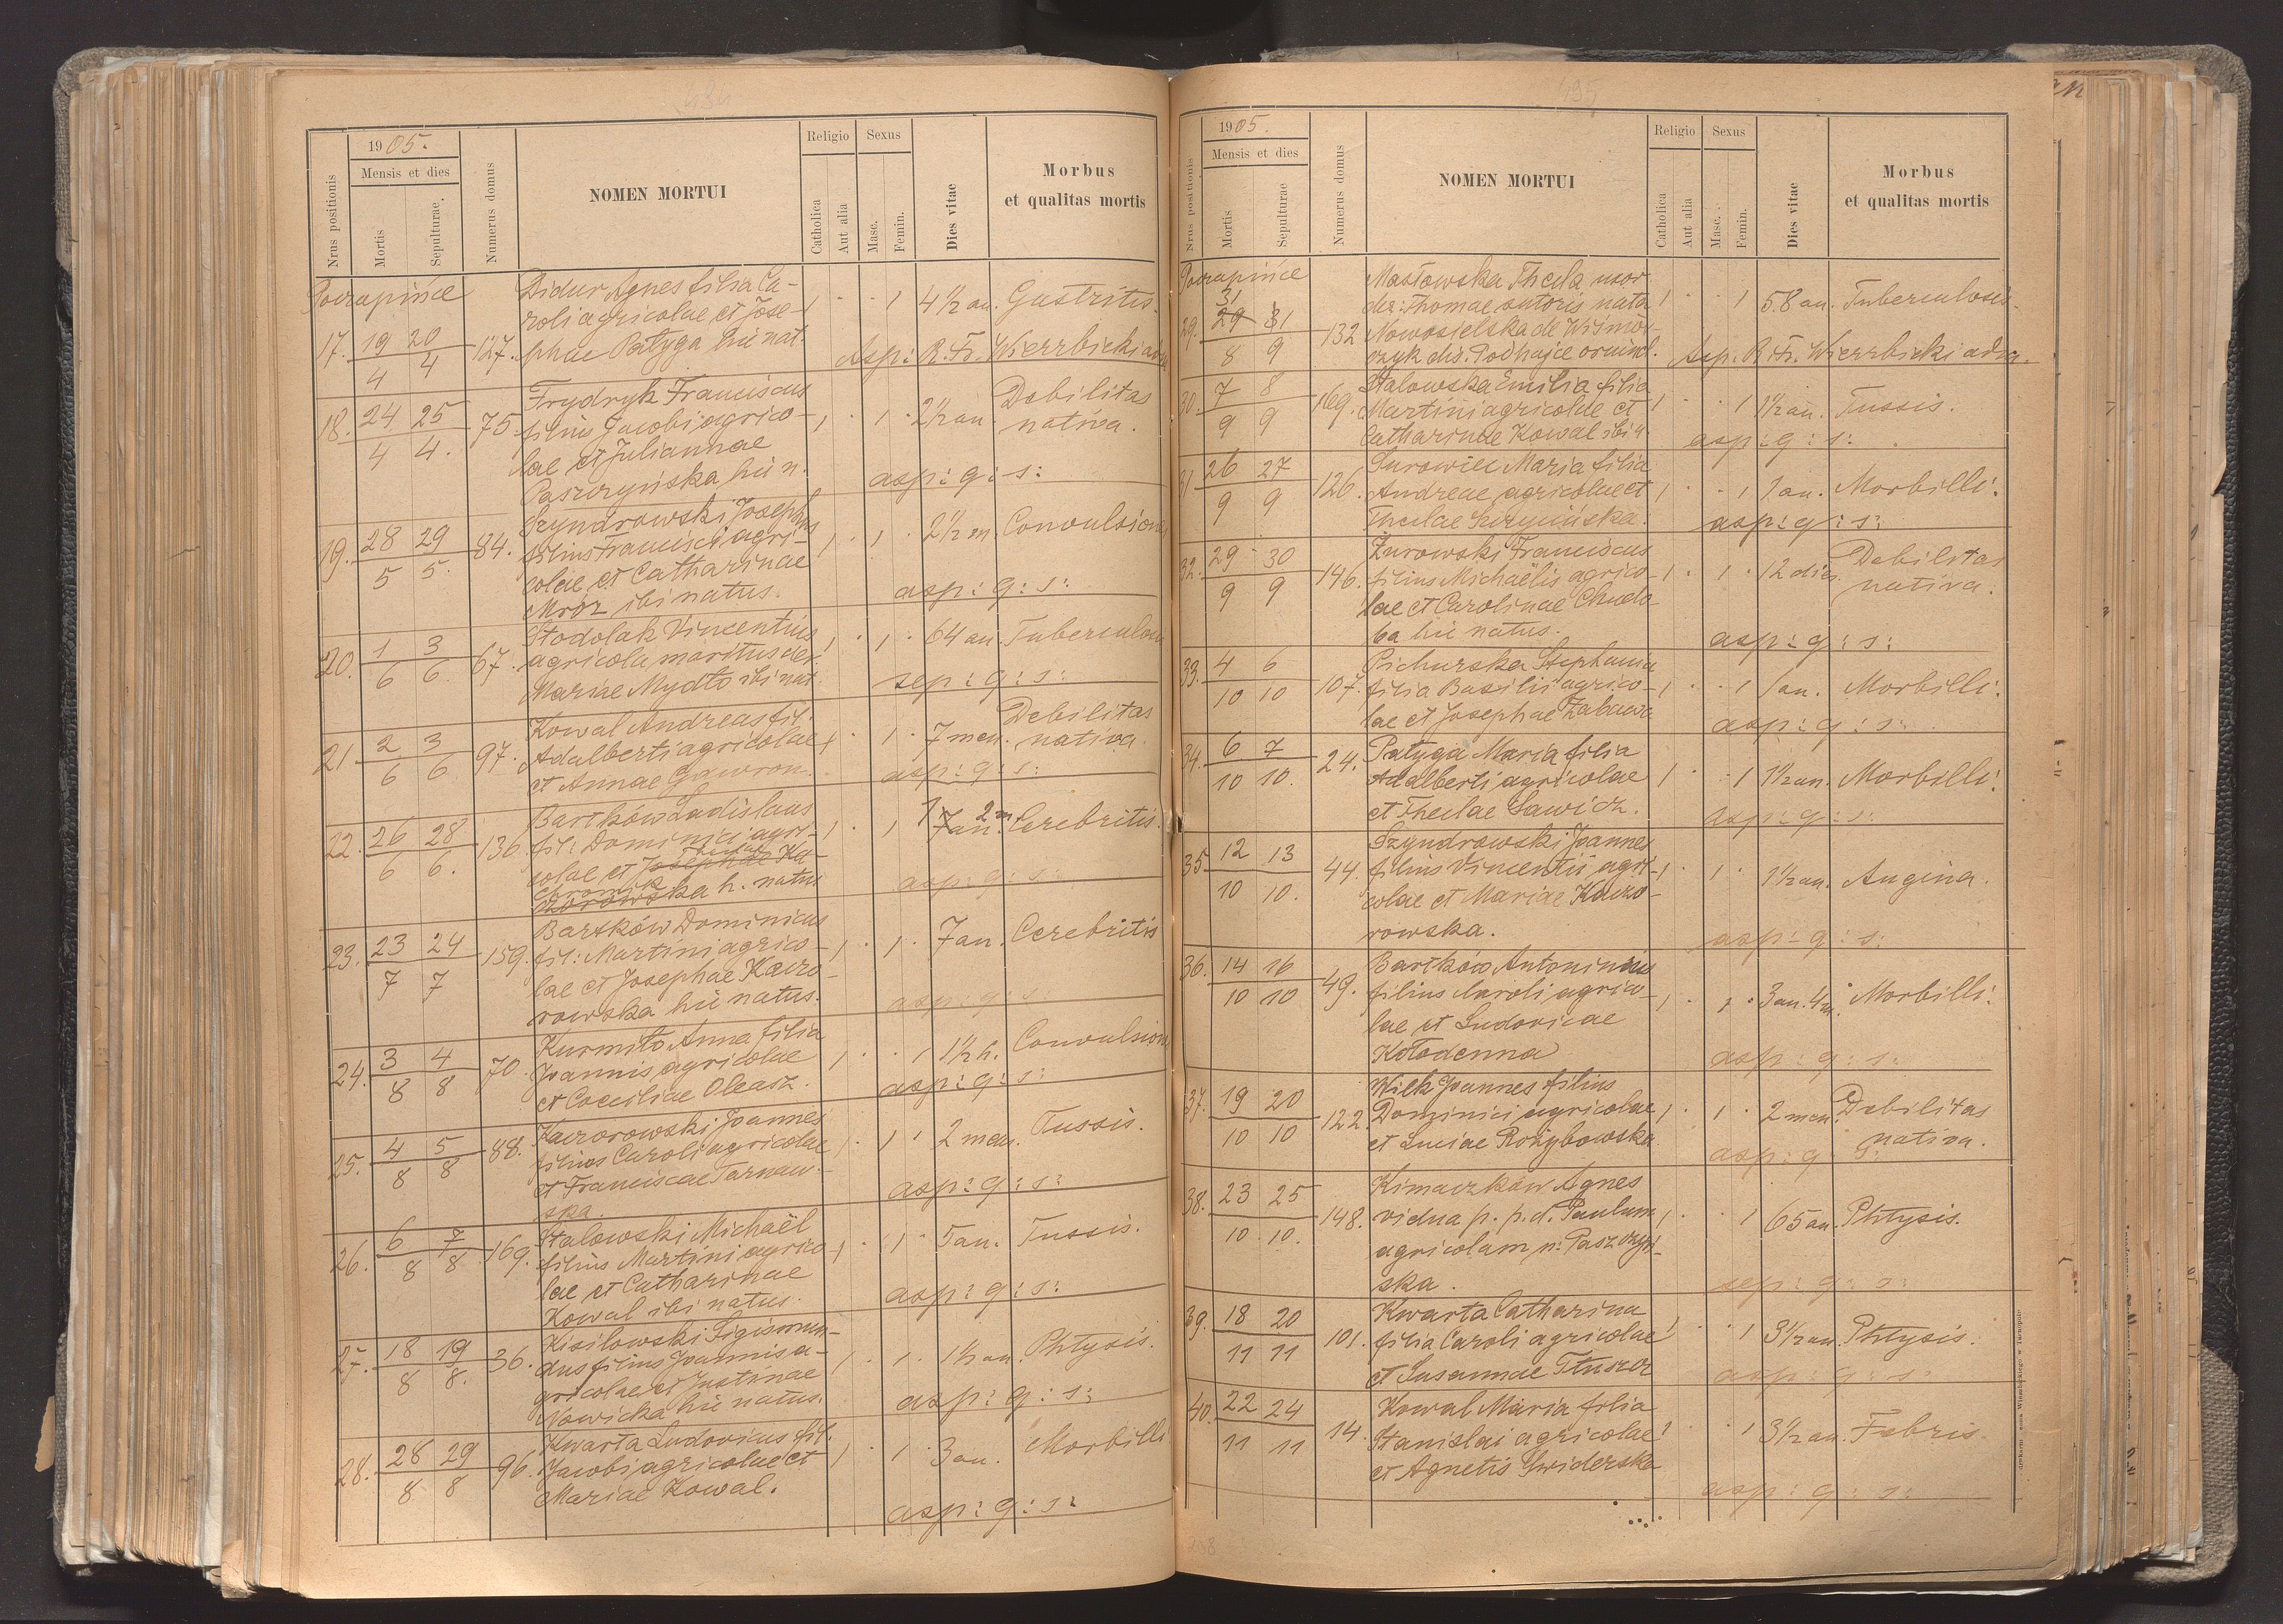 434
1905.
Mensis et dies
Nrus positionis
Mortis
Sepulturae.
Numerus domus
NOMEN MORTUI
Religio
Catholica
Aut alia
Sexus
Masc.
Femin.
Dies vitae
Morbus
et qualitas mortis
Poczapińce
17. 19/4 20/4 127.
Didur Agnes filia Ca-
roli agricolae et Jose-
phae Patyga hic nat.
1 · · 1 4½ an. Gastritis.
Asp: R. Fr. Wierzbicki adm.
18. 24/4 25/4. 75.
Frydryk Franciscus
filius Jacobi agrico-
lae et Juliannae
Paszczyńska hic n.
1 · 1 · 2½ an Debilitas
nativa.
asp: q: s:
19. 28/5 29/5. 84.
Szyndrowski Josephus
filius Francisci agri-
colae et Catharinae
Mróz ibi natus.
1 · 1 · 2½ m. Convulsiones
asp: q: s:
20. 1/6 3/6. 67.
Stodolak Vincentius
agricola maritus der.
Mariae Mydło ibi nat.
1 · 1 · 64 an. Tuberculosis
sep: q: s:
21. 2/6 3/6 97.
Kowal Andreas fil.
Adalberti agricolae
et Annae Gawron.
1 · 1 · 7 men. Debilitas
nativa.
asp: q: s:
22. 26/6 28/6. 136.
Bartków Ladislaus
fil: Dominici agri-
Theclae
colae et Josephae Ka-
Chromik
czorowska h. natus
1 · 1 1 2m. 7 an. Cerebritis.
asp: q: s:
23. 23/7 24/7 159.
Bartków Dominicus
fil: Martini agrico-
lae et Josephae Kaczo-
rowska hic natus.
1 · 1 · 7 an. Cerebritis
asp: q: s:
24. 3/8 4/8 70.
Kurmiło Anna filia
Joannis agricolae
et Caeciliae Oleasz.
1 · · 1 1½ h. Convulsiones
asp: q: s:
25. 4/8 5/8 88.
Kaczorowski Joannes
filius Caroli agricolae
et Franciscae Tarnaw-
ska.
1 · 1 · 2 men. Tussis.
asp: q: s:
26. 6/8 7/8 169.
Stalowski Michaël
filius Martini agrico-
lae et Catharinae
Kowal ibi natus.
1 · 1 · 5 an. Tussis.
asp: q: s:
27. 18/8 19/8. 36.
Kisilowski Sigismun-
dus filius Joannis a-
gricolae et Justinae
Nowicka hic natus.
1 · 1 · 1½ an. Phtysis.
asp: q: s:
28. 28/8 29/8 96.
Kwarta Ludovicus fil.
Jacobi agricolae et
Mariae Kowal.
1 · 1 · 3 an. Morbilli
asp: q: s:
435
1905.
Mensis et dies
Nrus positionis
Mortis
Sepulturae
Numerus domus
NOMEN MORTUI
Religio
Catholica
Aut alia
Sexus
Masc.
Femin.
Dies vitae
Morbus
et qualitas mortis
Poczapińce
31
29. 29/8 31/9 132
Masłowska Thecla uxor
der: Thomae sutoris nata
Nowosielska de Wiśniow-
czyk dis. Podhajce oriund.
1 · · 1 58 an. Tuberculosis.
Asp. R. Fr. Wierzbicki adm.
30. 7/9 8/9 169.
Stalowska Emilia filia
Martini agricolae et
Catharinae Kowal ibi n.
1 · · 1 1½ an. Tussis.
asp: q: s:
31. 26/9 27/9 126.
Surowiec Maria filia
Andreae agricolae et
Theclae
1 · · 1 1 an. Morbilli.
asp: q: s:
32. 29/9 30/9 146.
Żurowski Franciscus
filius Michaëlis agrico-
lae et Carolinae Chudo-
ba hic natus.
1 · 1 · 12 dies. Debilitas
nativa.
asp: q: s:
33. 4/10 6/10 107.
Pichurska Stephania
filia Basilii agrico-
lae et Josephae Zabawa
1 · · 1 1 an. Morbilli.
asp: q: s:
34. 6/10 7/10. 24.
Patyga Maria filia
Adalberti agricolae
et Theclae Sawicz.
1 · · 1 1½ an. Morbilli.
asp: q: s:
35 12/10 13/10. 44.
Szyndrowski Joannes
filius Vincentii agri-
colae et Mariae Kaczo-
rowska.
1 · 1 · 1½ an. Angina.
asp: q: s:
36. 14/10 16/10 49.
Bartków Antoninus
filius Caroli agrico-
lae et Ludovicae
Kołodenna
1 · 1 · 3 an. 4 m. Morbilli.
asp: q: s:
37. 19/10 20/10 122.
Wilk Joannes filius
Dominici agricolae
et Luciae Rożybowska.
1 · 1 · 2 men. Debilitas
nativa.
asp: q: s:
38. 23/10 25/10. 148.
Kimaczków Agnes
vidua p. p. d. Paulum
agricolam n: Paszczyń-
ska.
1 · · 1 65 an. Phtysis.
sep: q: s:
39. 18/11 20/11 101.
Kwarta Catharina
filia Caroli agricolae
et Susannae Tłuszcz
1 · · 1 3½ an. Phtysis.
asp: q: s:
40. 22/11 24/11 14.
Kowal Maria filia
Stanislai agricolae
et Agnetis Świderska
1 · · 1 3½ an. Febris.
asp: q: s: